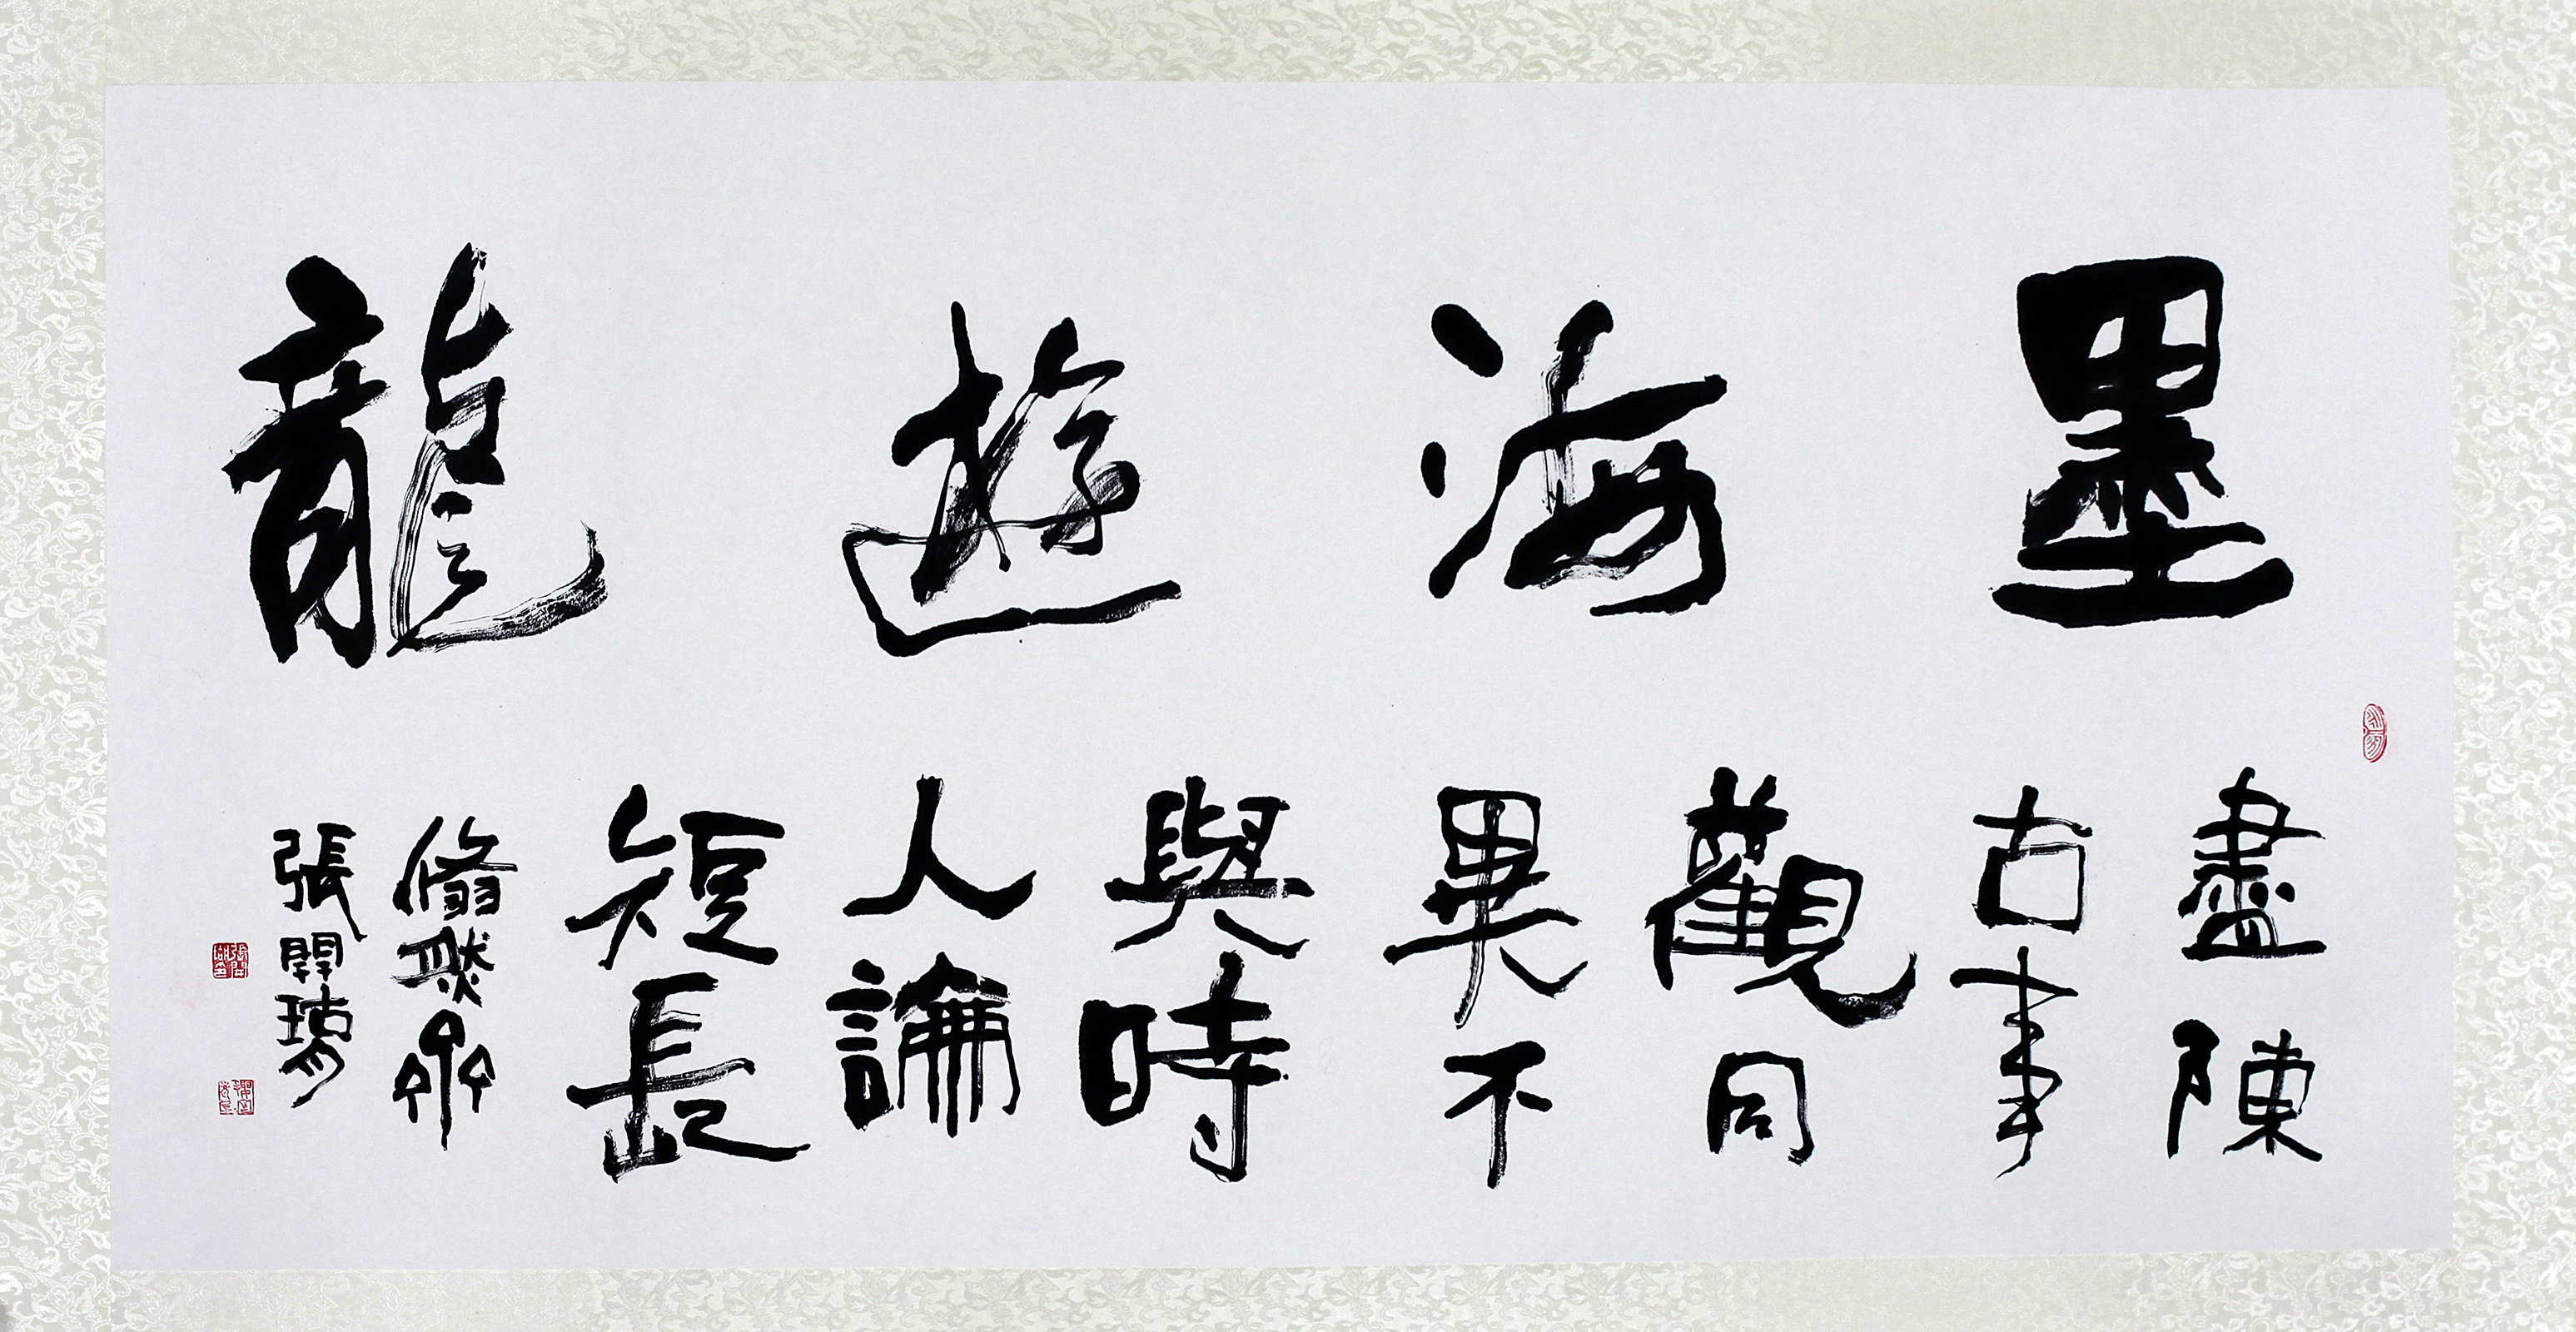 墨海遊龍
盡陳
古事
觀同
異不
與時
人論
短長
翛然
張開